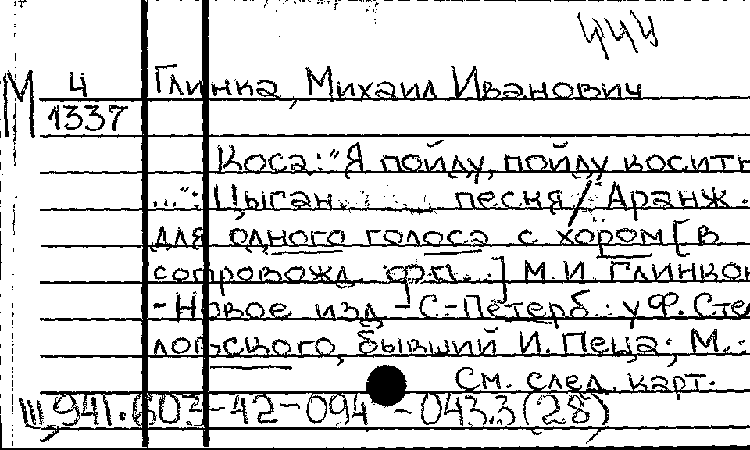 444
М 4 Глинка, Михаил Иванович
1337
Коса: "Я пойду, пойду косить
...": Цыган. песня / Аранж.
для одного голоса с хором [в
сопровожд. фп..] М.И. Глинкой
-Новое изд.-С.-Петерб.: у Ф. Стел
ловского, бывший И. Пеца; М.:
См. след. карт.
Ш 941.603-42-094-043.3(28)